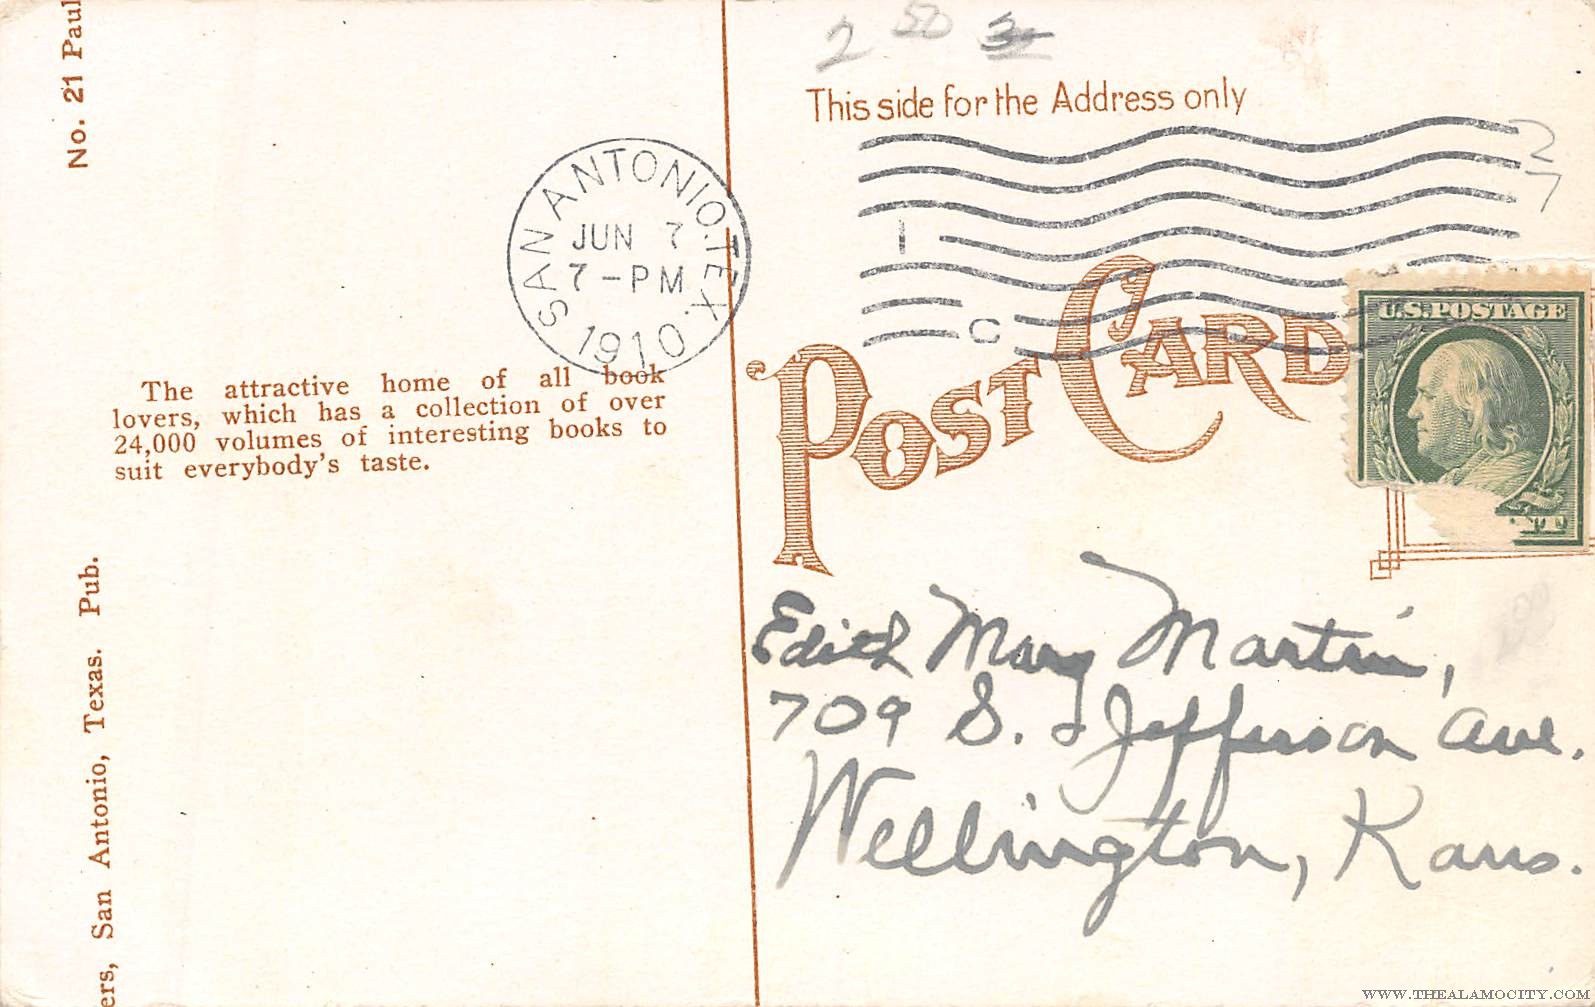 2 50 3
This side for the Address only
No. 21 Paul
SAN ANTONIO. TEX.
JUN 7
7 - PM
1910
1
C
2
7
POST CARD
U.S. POSTAGE
The attractive home of all book
lovers, which has a collection of over
24,000 volumes of interesting books to
suit everybody's taste.
ers, San Antonio, Texas. Pub.
Edith Mary Martin,
709 S. Jefferson Ave.
Wellington, Kans.
WWW.THEALAMOCITY.COM